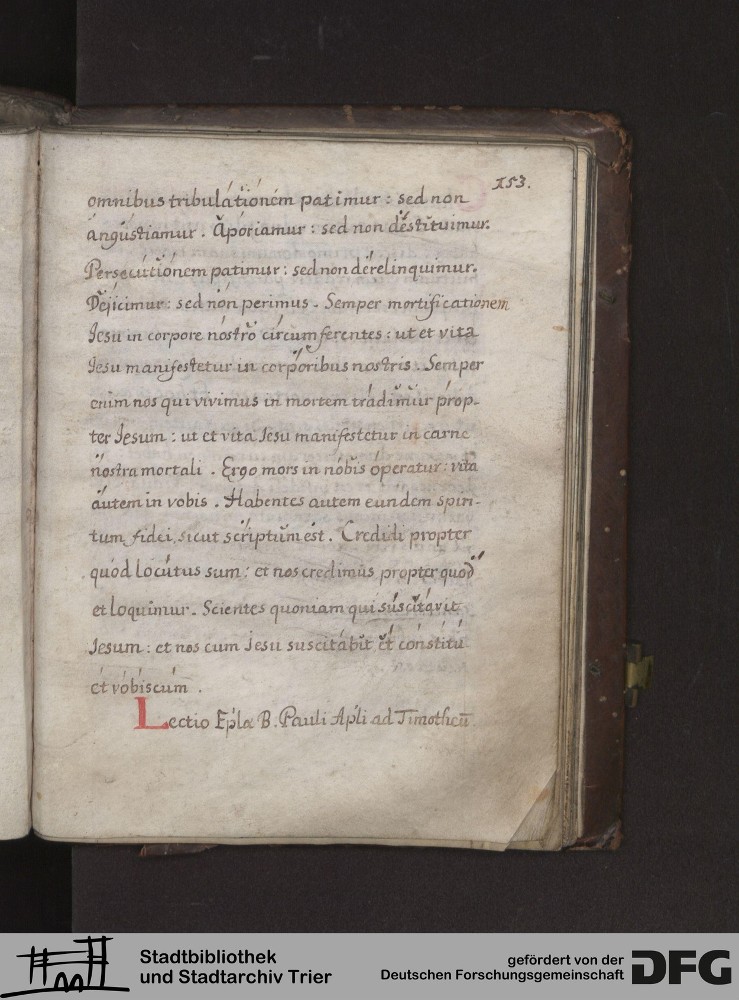 153.
omnibus tribulátiónem patimur : sed non
ángústiamur . Áporiamur : sed non déstituimur.
Persecútiónem patimur : sed non dérelinquimur.
Déjicimur : sed nón perimus . Semper mortificationem
Jesu in corpore nóstró circúmferentes : ut et vita
Jesu manifestetur in corpóribus nostris . Semper
enim nos qui vivimus in mortem trádimúr próp-
ter Jesum : ut et vita Jesu manifestetur in carne
nóstra mortali . Ergo mors in nóbis óperatur : vita
áutem in vobis . Habentes autem eúndem spiri-
tum fidei, sicut scriptúm est . Credidi propter
quód locútus sum : et nos credimús propter quód
et loquimur . Scientes quoniam qui súscitávit
Jesum : et nos cum Jesu suscitábit ét cónstitú
ét vóbiscúm .
Lectio Eplæ B. Pauli Apli ad Timotheū
Stadtbibliothek
und Stadtarchiv Trier
gefördert von der
Deutschen Forschungsgemeinschaft
DFG